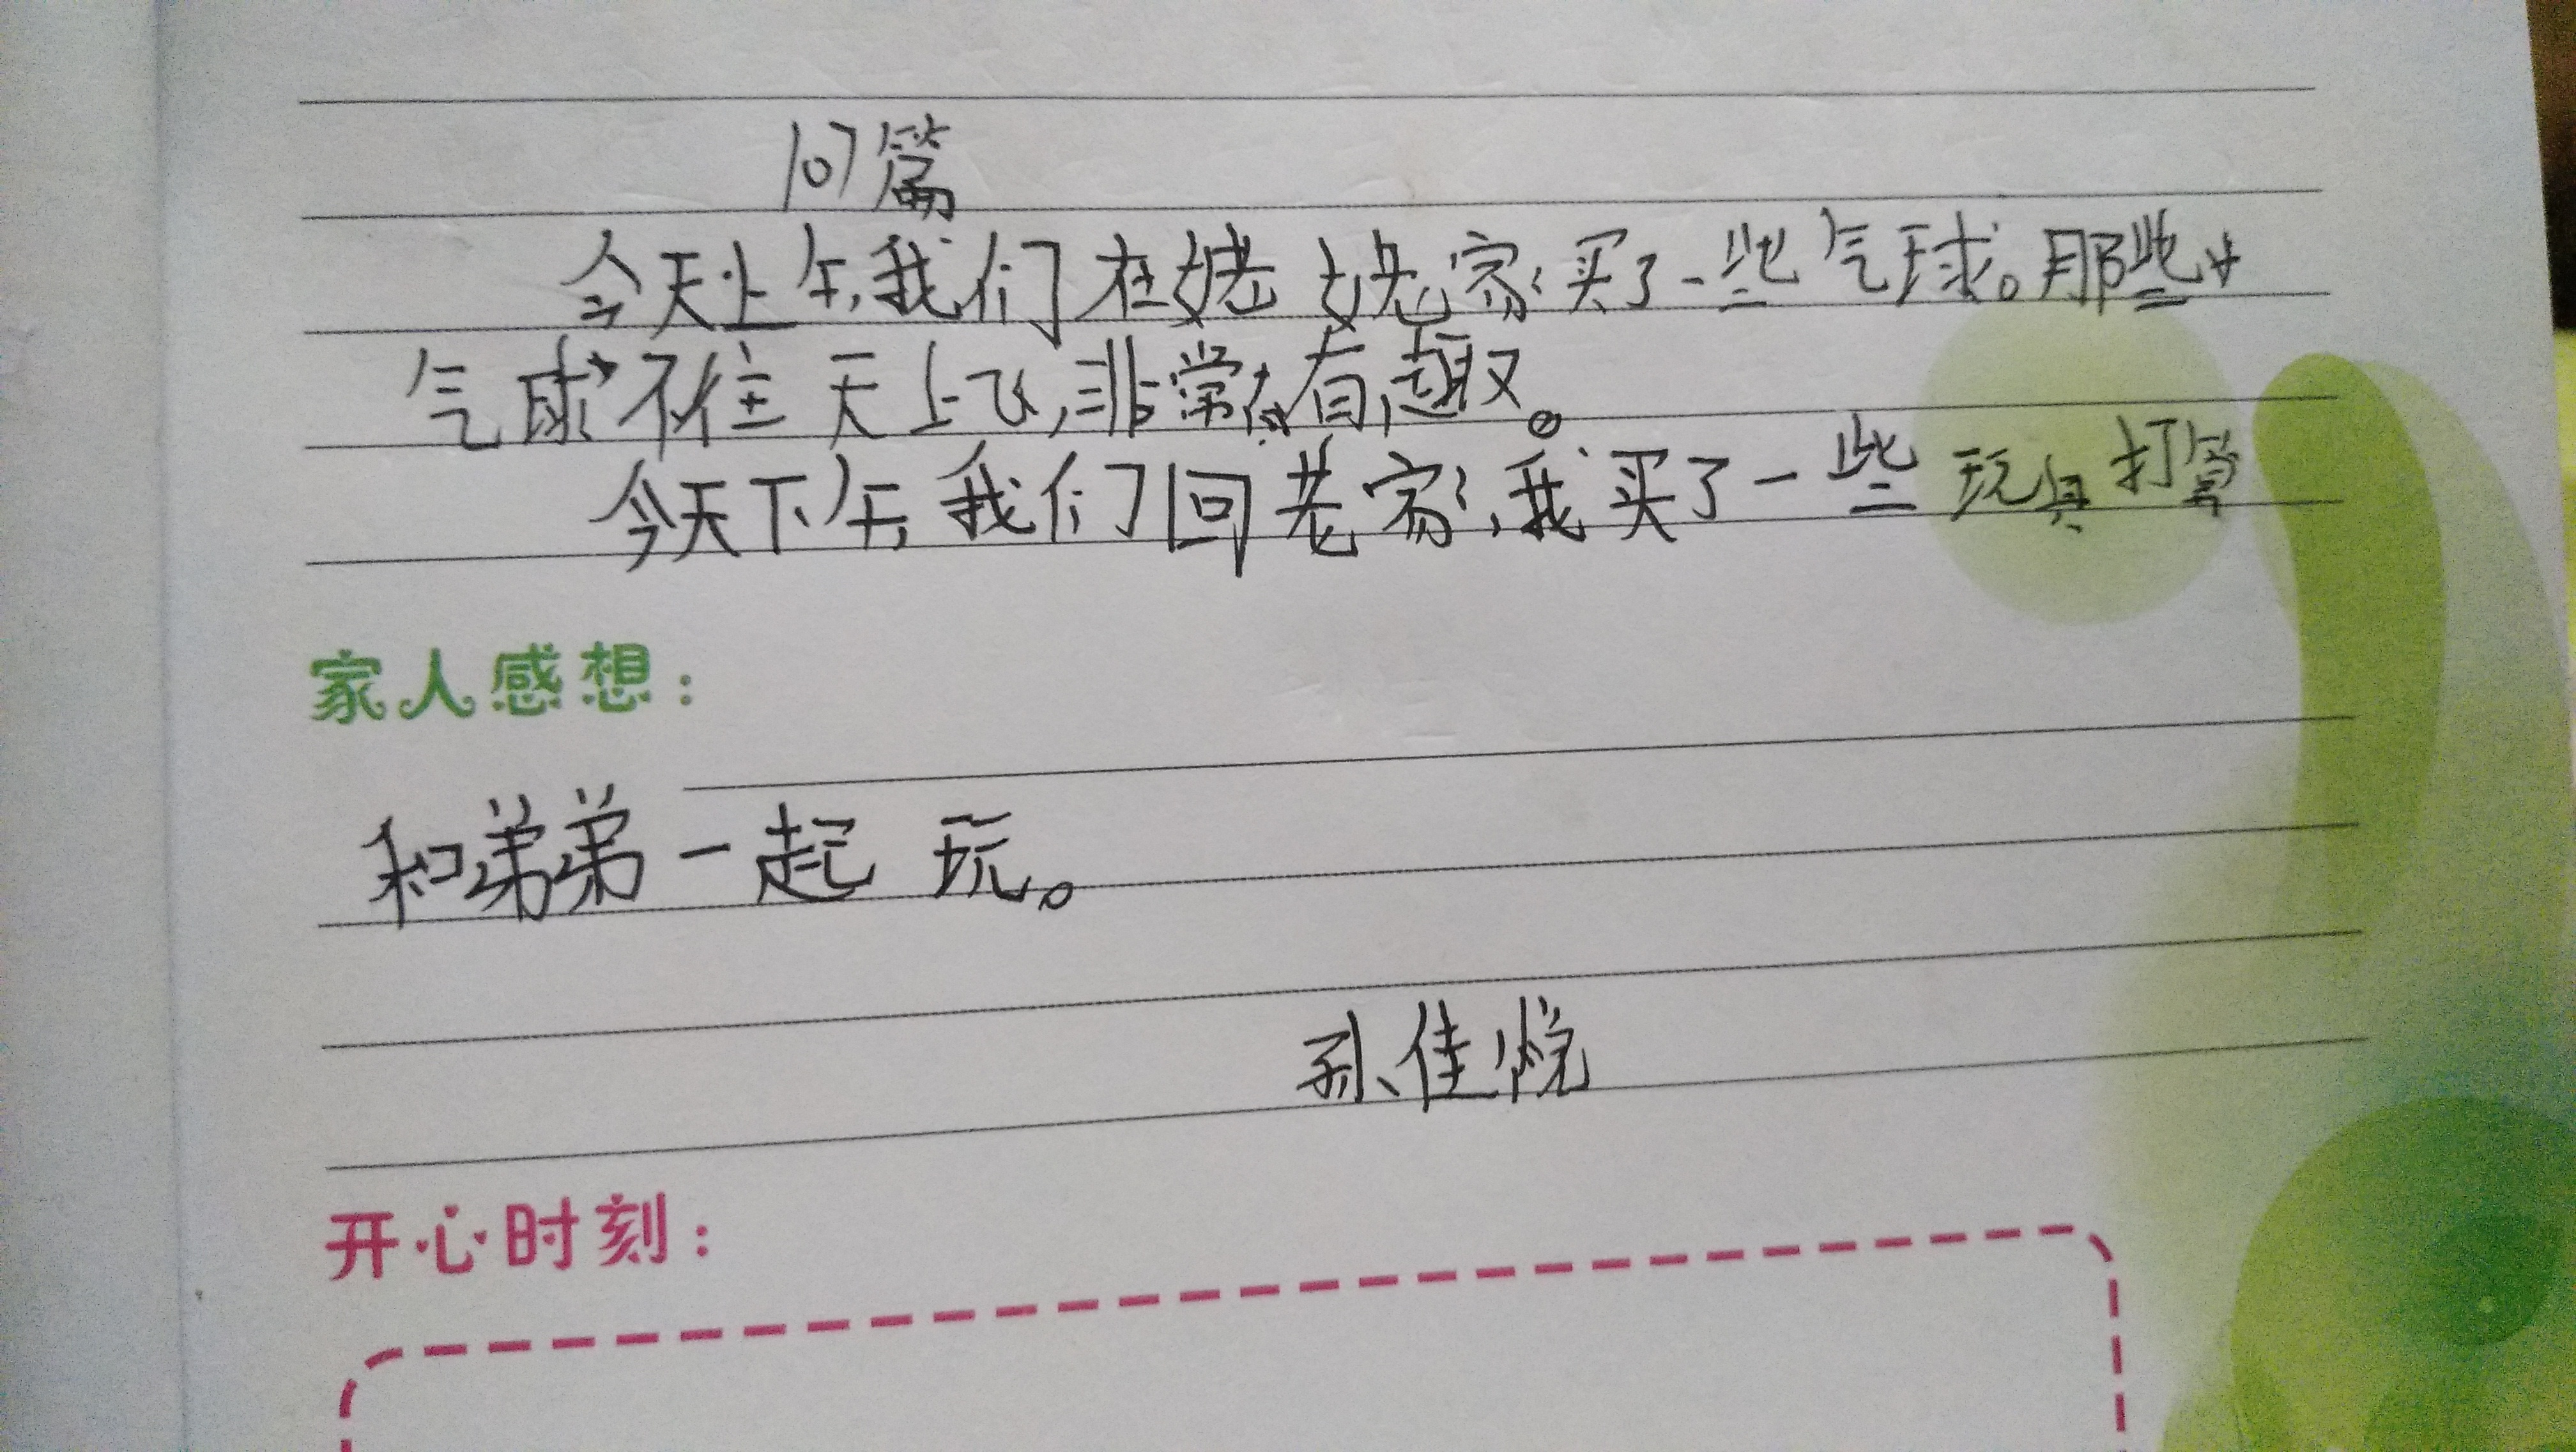 107篇
今天上午,我们在姥姥家买了一些气球。那些
气球不住天上飞,非常有趣。
今天下午,我们回老家,我买了一些玩具打算
家人感想：
和弟弟一起玩。
孙佳悦
开心时刻：